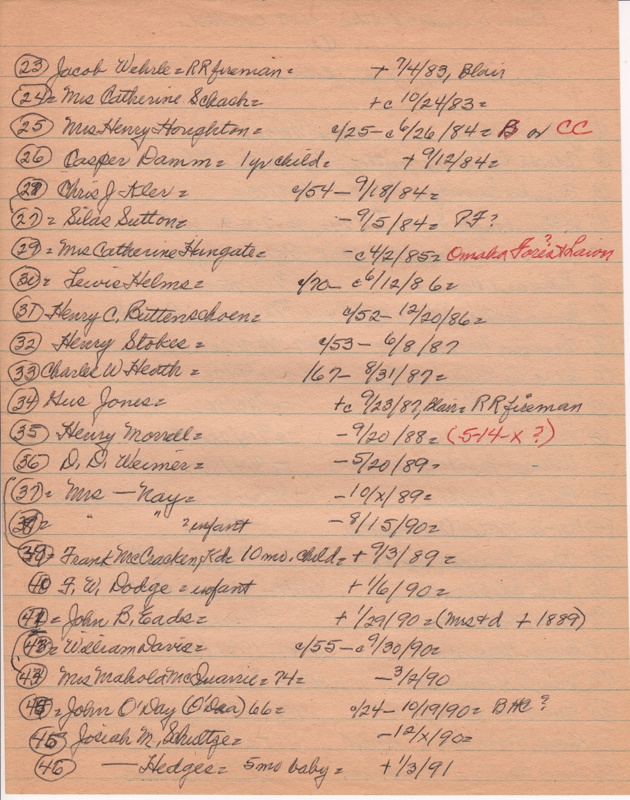 (23) Jacob Wehrle = RR fireman = + 7/4/83, Blair
(24) = Mrs Catherine Schach = +c 10/24/83 =
(25) Mrs Henry Houghton = c/25 – c 6/26/84 = B or CC
(26) Casper Damm = 1 yr child = + 9/12/84 =
(28) Chris J Kler = c/54 – 9/18/84 =
(27) = Silas Sutton = – 9/5/84 = PF?
(29) = Mrs Catherine Hungate = – c 4/2/85 = Omaha Forest Lawn ?
(30) = Lewis Helms = c/70 – c 6/12/86 =
(31) Henry C. Buttenschoen = c/52 – 12/20/86 =
(32) Henry Stokes = c/53 – 6/8/87
(33) Charles W Heath = /67 – 8/31/87 =
(34) Gus Jones = +c 9/23/87, Blair = RR fireman
(35) Henry Morrell = – 9/20/88 = (5-14-x ?)
(36) D. D. Weimer = – 5/20/89 =
(37) = Mrs — Kay = – 10/x/89 =
(38) = " " = infant – 8/15/90 =
(39) = Frank McCracken, Kdr 10 mo. child = + 9/3/89 =
(40) F. W. Dodge = infant + 1/6/90 =
(41) = John B. Eads = + 1/29/90 = (Mrs + d + 1889)
(42) = William Davis = c/55 – c 9/30/90 =
(43) Mrs Mahola McQuarrie = 74 = – 3/2/90
(45) = John O'Day (O'Dea) 66 = c/24 – 10/19/90 = B HC ?
(45) Josiah M. Schultze = – 12/x/90 =
(46) — Hedges = 5 mo baby = + 1/3/91